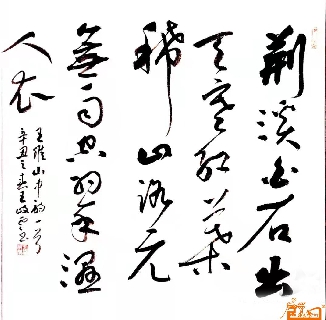 荆溪白石出
天寒红叶
稀山路元
无雨空翠湿
人衣
王维山中诗一首
辛丑之春王政